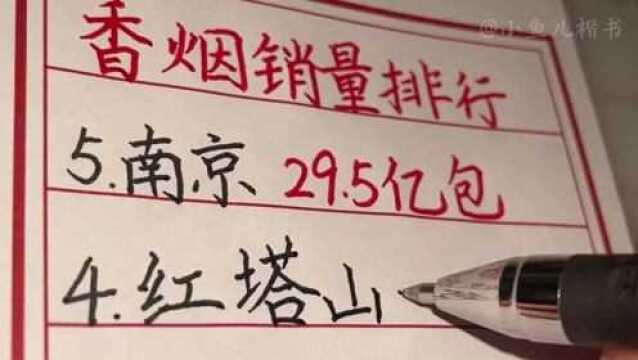 @小鱼儿楷书
香烟销量排行
5.南京 29.5亿包
4.红塔山